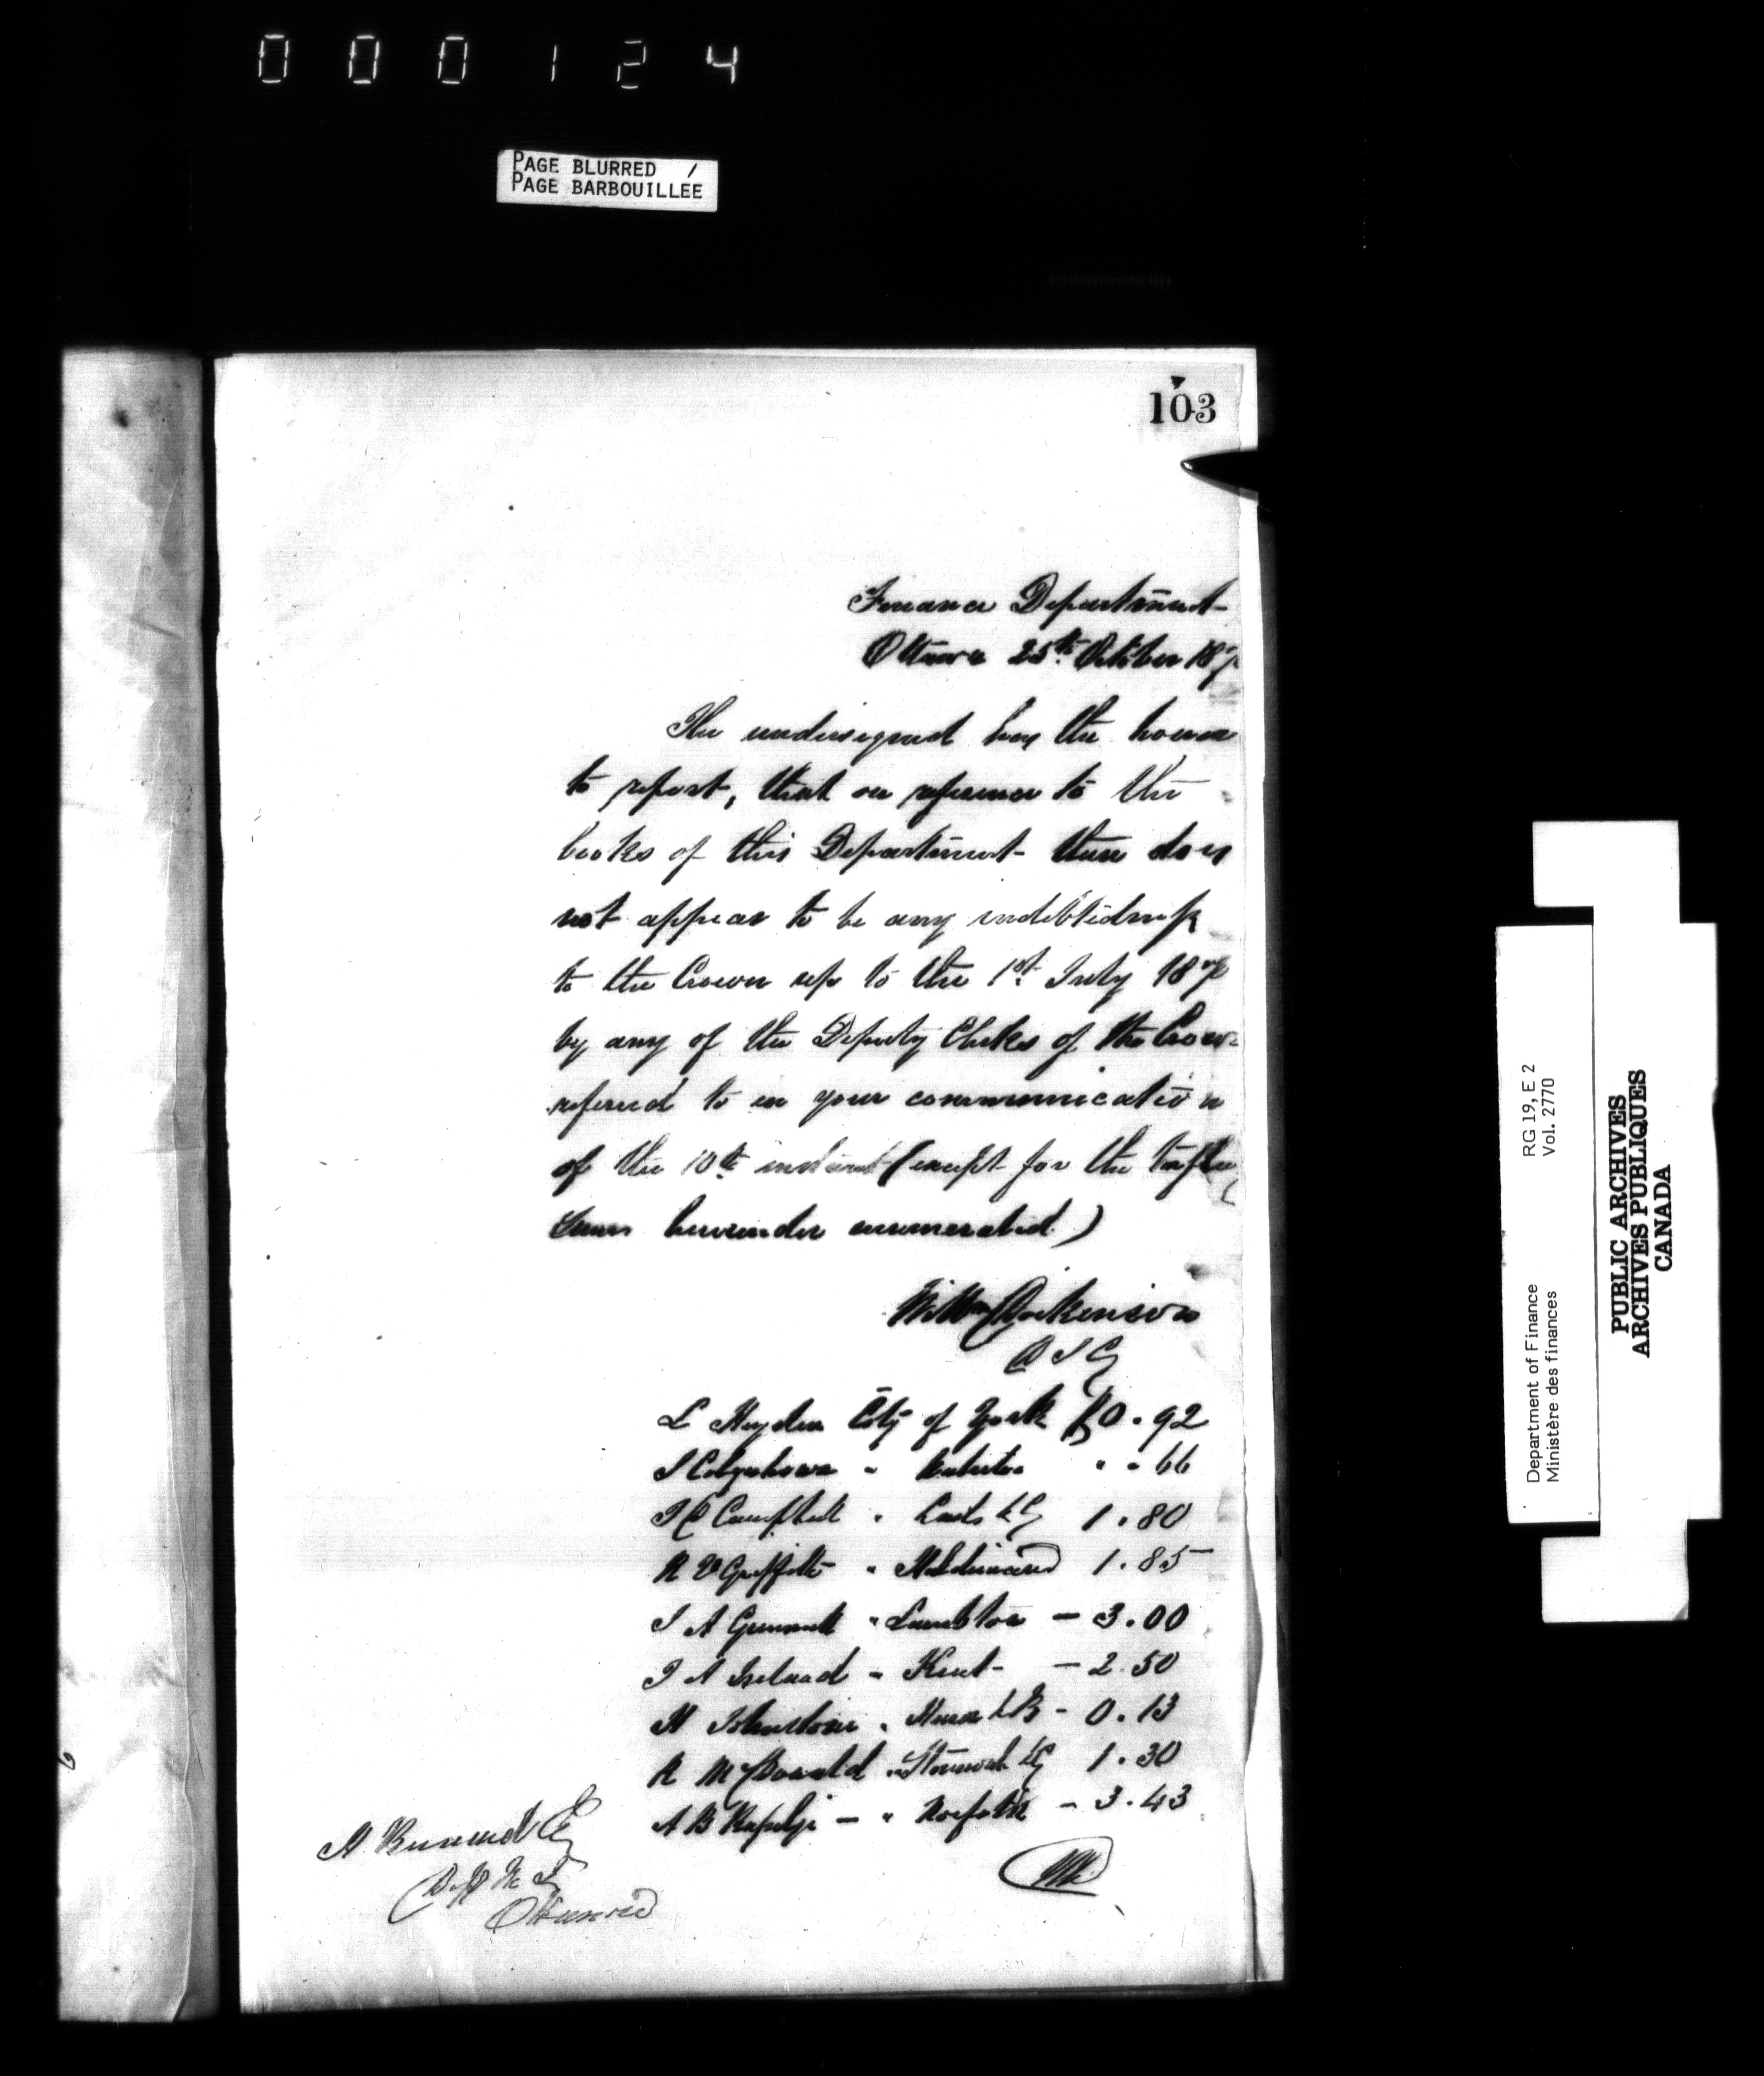 000124
PAGE BLURRED /
PAGE BARBOUILLÉE
103
Finance Department
Ottawa 25th October 187
The undersigned has the honor
to report, that on reference to the
books of this Department there does
not appear to be any indebtedness
to the Crown up to the 1st July 187
by any of the Deputy Clerks of the Crown
referred to in your communication
of the 10th instant (except for the
sums hereunder enumerated)
Dickinson
L Heyden City of York $0.92
" " " 66
Campbell " Leeds & G 1.80
A Griffith " Haldimand 1.85
" Lambton — 3.00
Ireland " Kent — 2.50
Johnstone " B - 0.13
McDonald " Stormont &c 1.30
A B Rapelje — " Norfolk — 3.43
Ottawa
Department of Finance RG 19, E 2
Ministère des finances Vol. 2770
PUBLIC ARCHIVES
ARCHIVES PUBLIQUES
CANADA